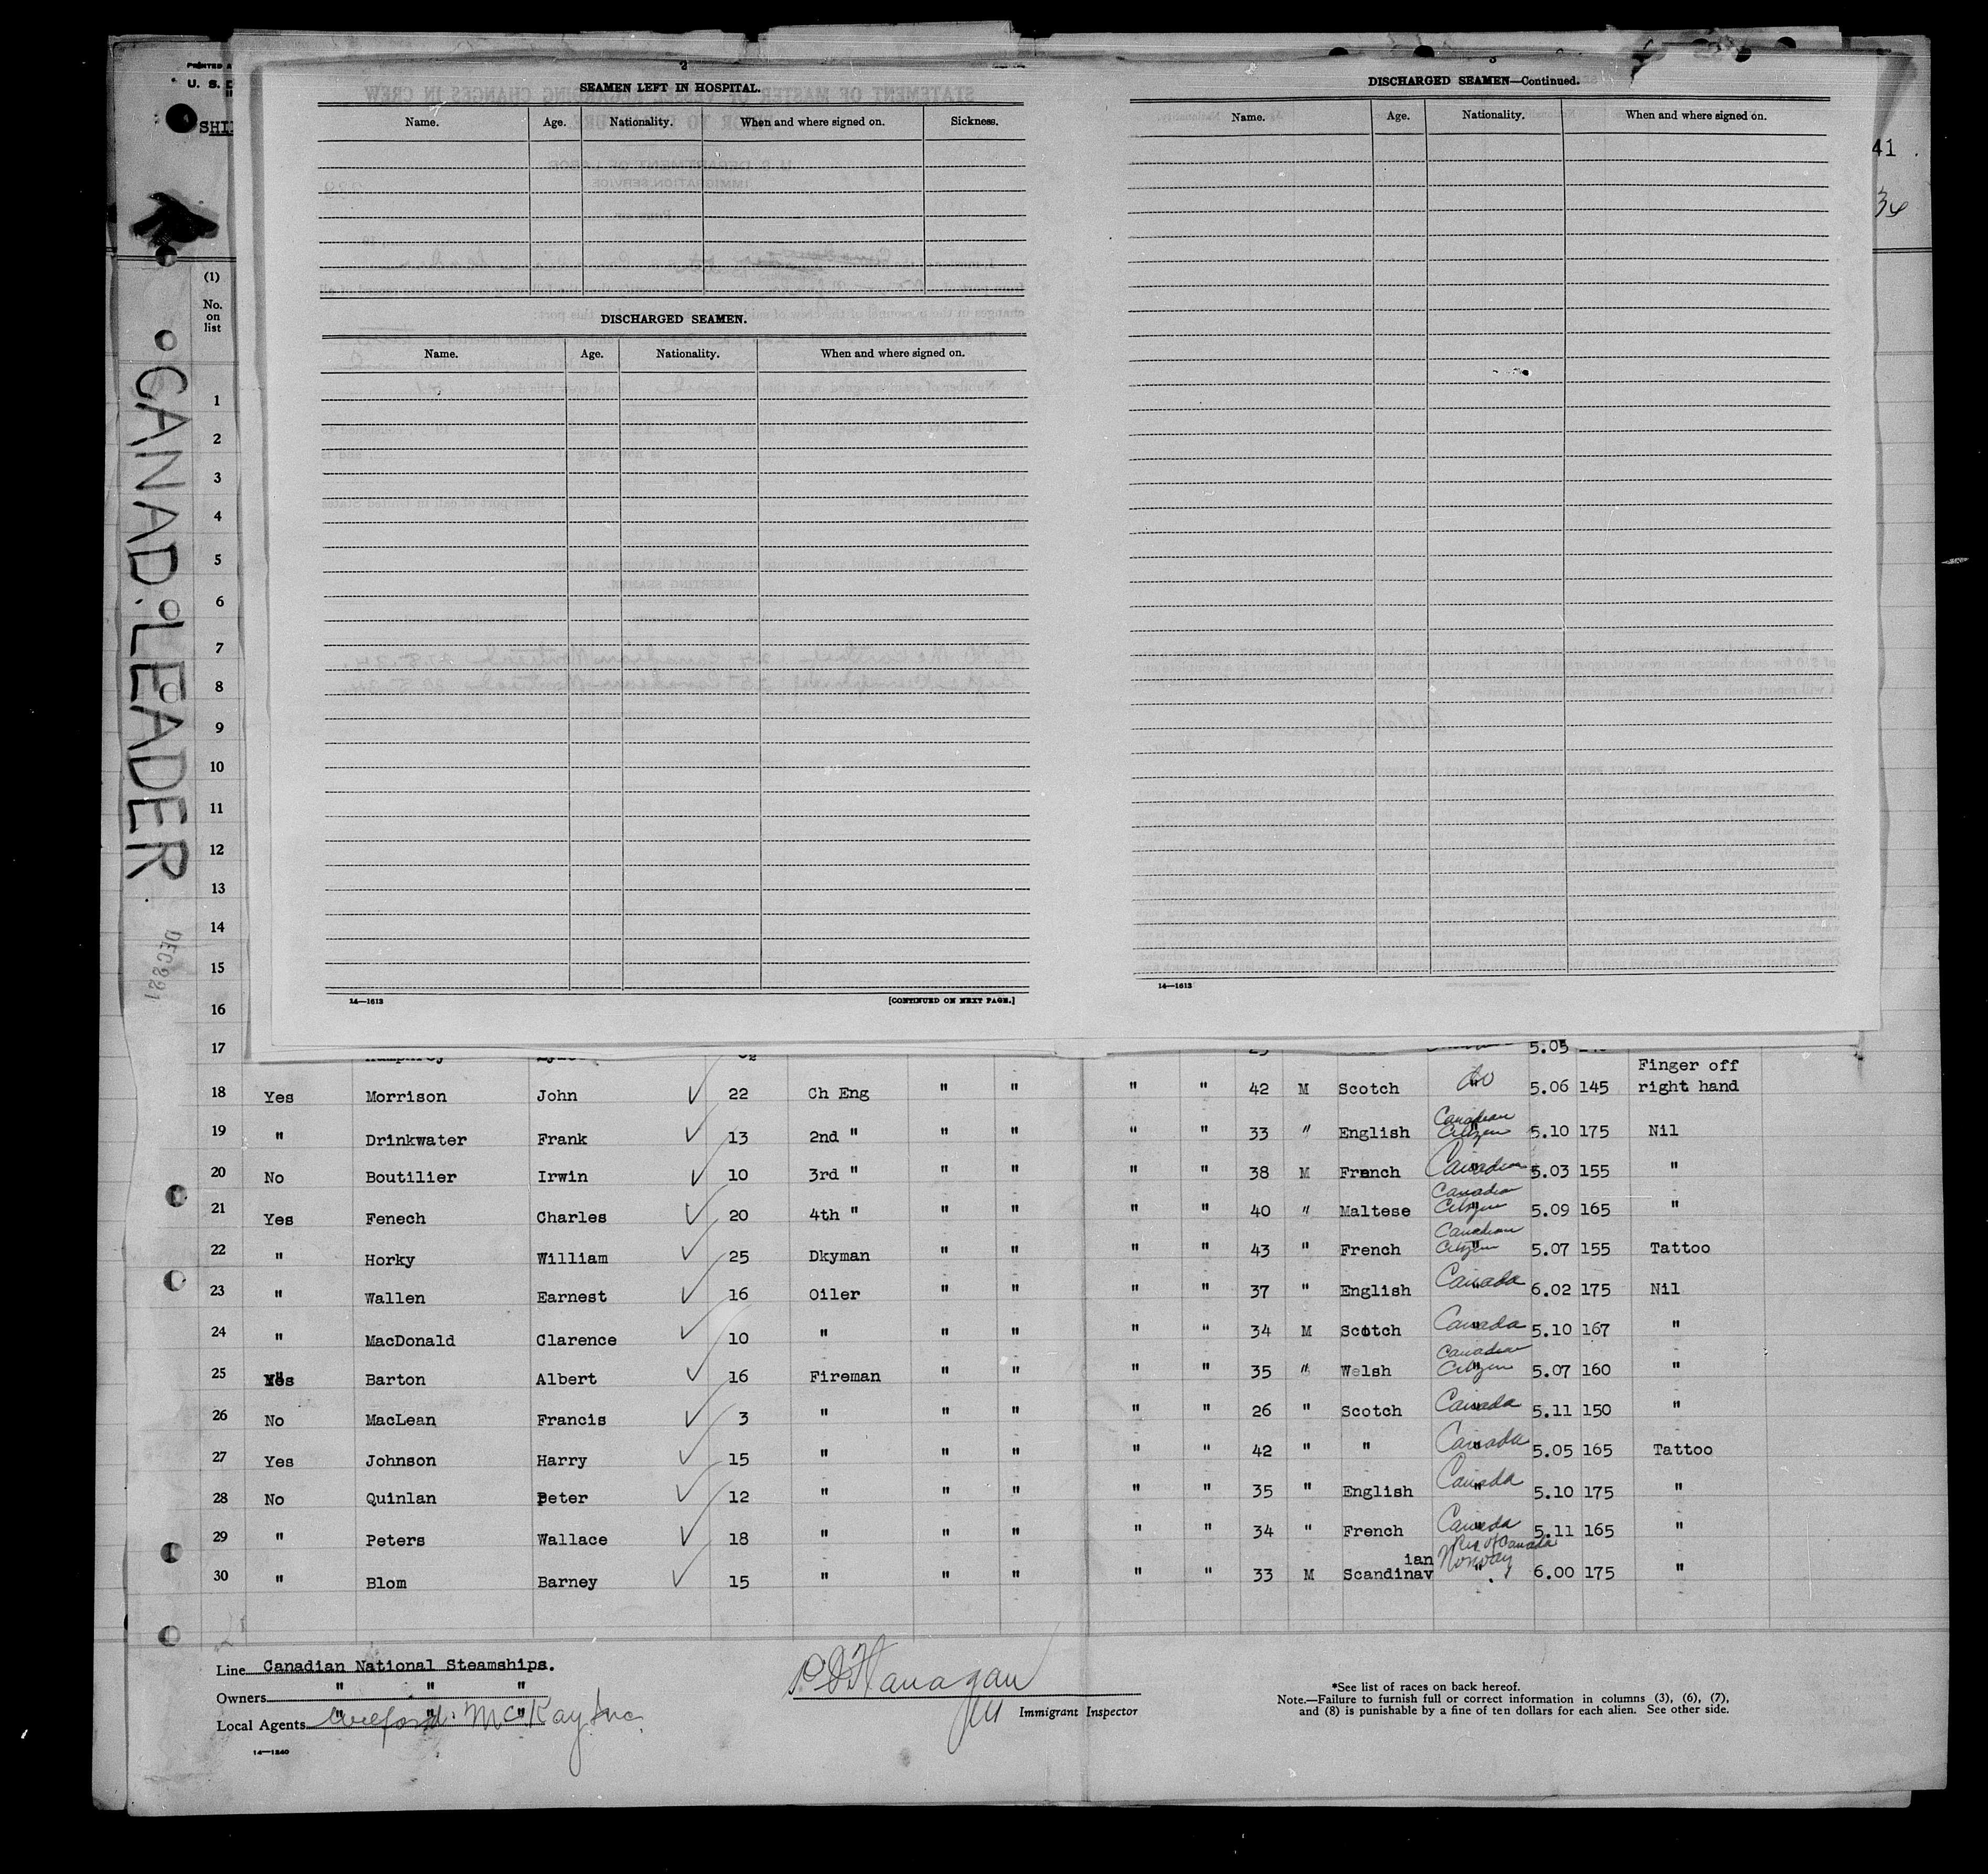 PRINTED
U. S. D
SHI
41
34
2
SEAMEN LEFT IN HOSPITAL.
Name. Age. Nationality. When and where signed on. Sickness.
DISCHARGED SEAMEN.
Name. Age. Nationality. When and where signed on.
14—1613 [CONTINUED ON NEXT PAGE.]
3
DISCHARGED SEAMEN—Continued.
Name. Age. Nationality. When and where signed on.
14—1613
CANAD. LEADER
(1)
No.
on
list
1
2
3
4
5
6
7
8
9
10
11
12
13
14
15
16
17 5.05
18 Yes Morrison John ✓ 22 Ch Eng " " " " 42 M Scotch do " 5.06 145 Finger off right hand
19 " Drinkwater Frank ✓ 13 2nd " " " " " 33 " English Canadian Citizen " 5.10 175 Nil
20 No Boutilier Irwin ✓ 10 3rd " " " " " 38 M French Canadian " 5.03 155 "
21 Yes Fenech Charles ✓ 20 4th " " " " " 40 " Maltese Canadian Citizen " 5.09 165 "
22 " Horky William ✓ 25 Dkyman " " " " 43 " French Canadian Citizen " 5.07 155 Tattoo
23 " Wallen Earnest ✓ 16 Oiler " " " " 37 " English Canada " 6.02 175 Nil
24 " MacDonald Clarence ✓ 10 " " " " " 34 M Scotch Canada " 5.10 167 "
25 Yes Barton Albert ✓ 16 Fireman " " " " 35 " Welsh Canadian Citizen " 5.07 160 "
26 No MacLean Francis ✓ 3 " " " " " 26 " Scotch Canada " 5.11 150 "
27 Yes Johnson Harry ✓ 15 " " " " " 42 " " Canada " 5.05 165 Tattoo
28 No Quinlan Peter ✓ 12 " " " " " 35 " English Canada " 5.10 175 "
29 " Peters Wallace ✓ 18 " " " " " 34 " French Canada " 5.11 165 "
30 " Blom Barney ✓ 15 " " " " " 33 M Scandinavian Res of Canada Norway " 6.00 175 "
Line Canadian National Steamships.
Owners " " "
Local Agents " " " McKay Inc.
14—1240
Immigrant Inspector
*See list of races on back hereof.
Note.—Failure to furnish full or correct information in columns (3), (6), (7),
and (8) is punishable by a fine of ten dollars for each alien. See other side.